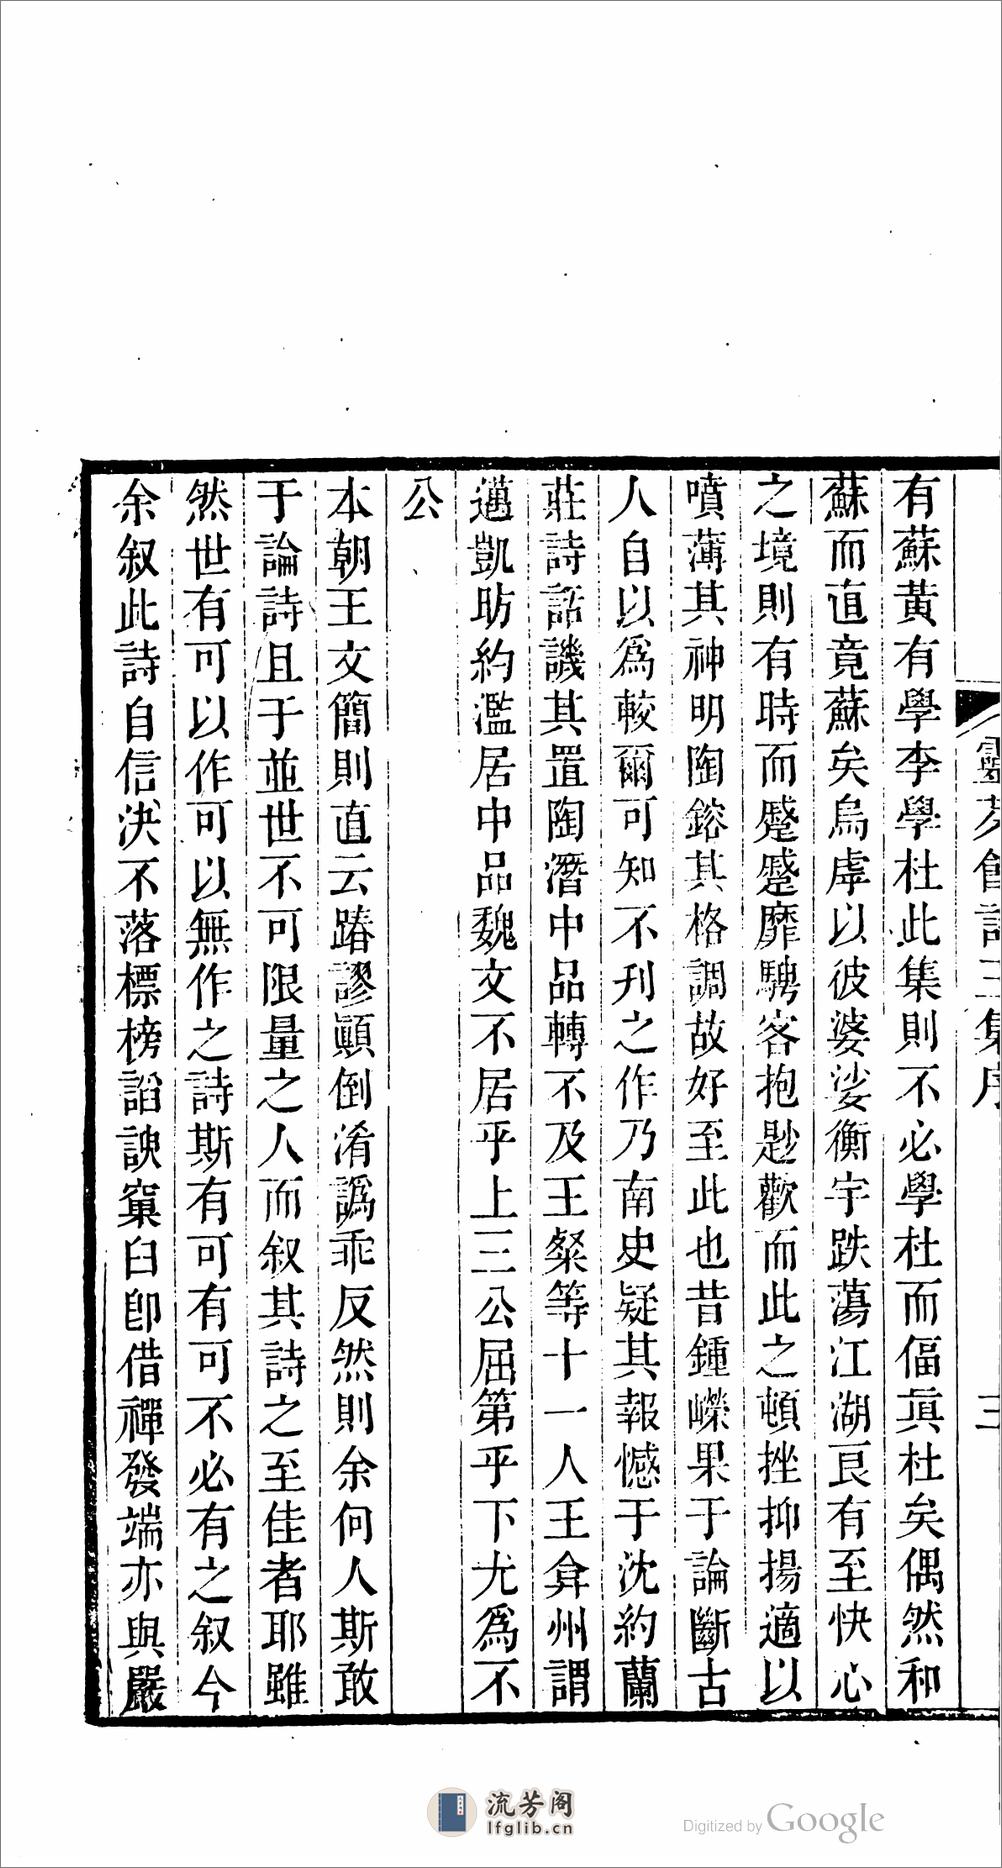 靈芬館詩三集序
三
有蘇黃有學李學杜此集則不必學杜而偪眞杜矣偶然和
蘇而直竟蘇矣烏虖以彼婆娑衡宇跌蕩江湖艮有至快心
之境則有時而蹙蹙靡騁客抱尟歡而此之頓挫抑揚適以
噴薄其神明陶鎔其格調故好至此也昔鍾嶸果于論斷古
人自以爲較爾可知不刋之作乃南史疑其報憾于沈約蘭
莊詩話譏其置陶潛中品轉不及王粲等十一人王弇州謂
邁凱昉約濫居中品魏文不居乎上三公屈第乎下尤爲不
公
本朝王文簡則直云踳謬顚倒淆譌乖反然則余何人斯敢
于論詩且于並世不可限量之人而叙其詩之至佳者耶雖
然世有可以作可以無作之詩斯有可有可不必有之叙今
余叙此詩自信決不落標榜謟諛窠臼卽借禪發端亦與嚴
流芳阁
lfglib.cn
Digitized by Google